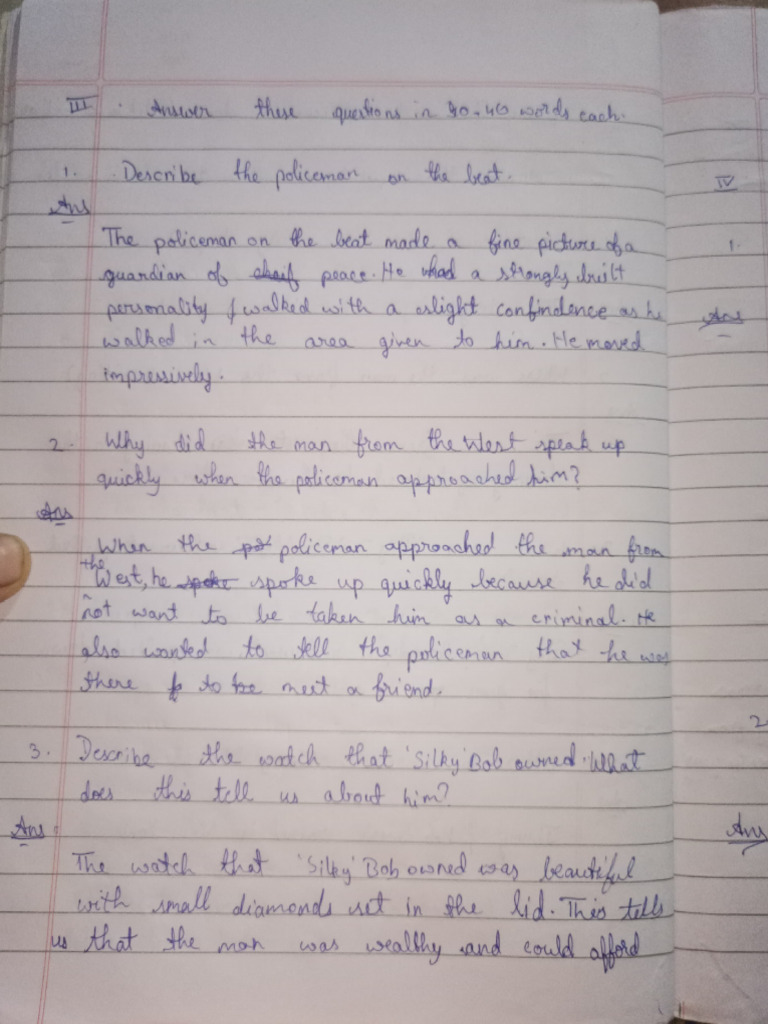 III. Answer these questions in 30-40 words each.
IV
1. Describe the policeman on the beat.
Ans
The policeman on the beat made a fine picture of a
1.
guardian of peace. He had a strongly built
personality & walked with a slight confindence as he
Ans
walked in the area given to him. He moved
impressively.
2. Why did the man from the West speak up
quickly when the policeman approached him?
Ans
When the policeman approached the man from
the West, he spoke up quickly because he did
not want to be taken him as a criminal. He
also wanted to tell the policeman that he was
there to meet a friend.
2
3. Describe the watch that 'Silky' Bob owned. What
does this tell us about him?
Ans
Ans
The watch that 'Silky' Bob owned was beautiful
with small diamonds set in the lid. This tells
us that the man was wealthy and could afford